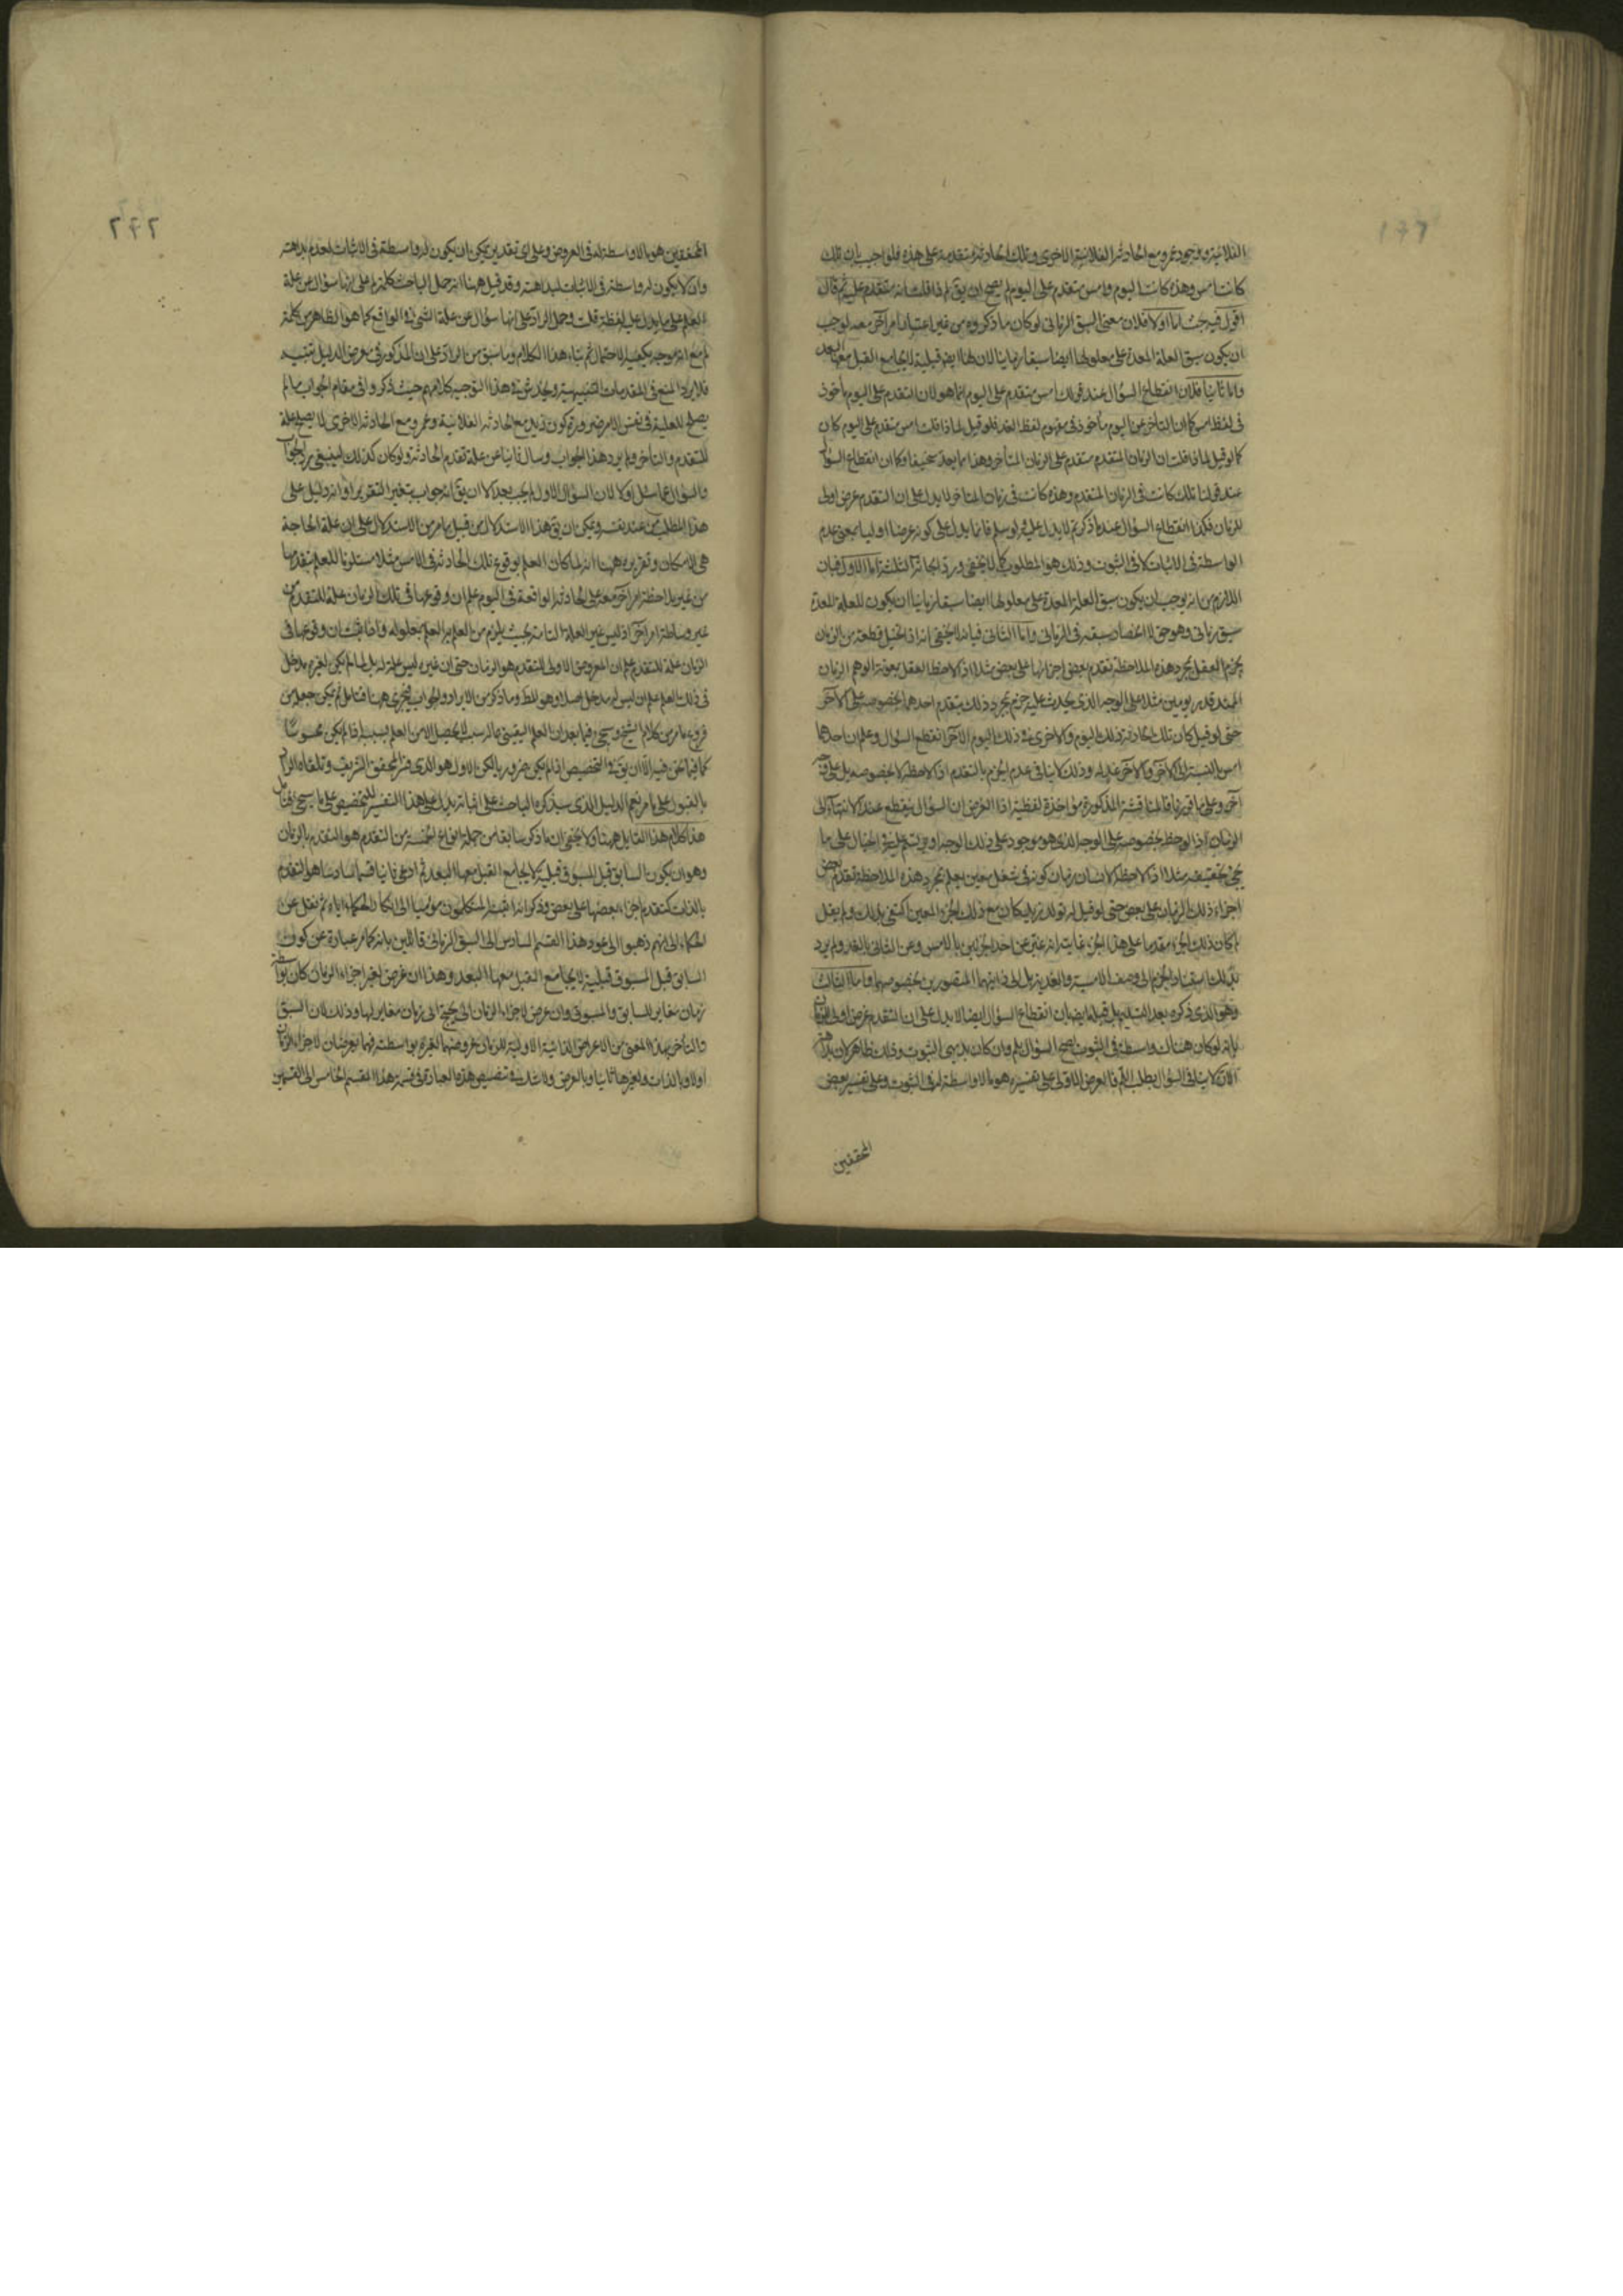 الفلانية ووجود عمرو مع الحادثة الفلانية الاخرى وتلك الحادثة متقدمة على هذه فلو اجيب بان تلك
كانت امس وهذه كانت اليوم وامس متقدم على اليوم لم يصح ان يق لم ذا قلت انه متقدم عليه ثم قال
اقول فيه بحث اما اولا فلان معنى السبق الزمانى لو كان ما ذكروه من غير اعتبار امر آخر معه لوجب
ان يكون سبق العلة المعدة على معلولها ايضا سبقا زمانيا لان لها ايضا قبلية لا يجامع القبل معها البعد
واما ثانيا فلان انقطاع السؤال عند قولك امس متقدم على اليوم انما هو لان التقدم على اليوم مأخوذ
فى لفظ امس كما ان التأخر عن اليوم مأخوذ فى مفهوم لفظ الغد فلو قيل لماذا قلت امس متقدم على اليوم كان
كما لو قيل لماذا قلت ان الزمان المتقدم متقدم على الزمان المتأخر وهذا مما يعد سخيفا وكما ان انقطاع السؤال
عند قولنا تلك كانت فى الزمان المتقدم وهذه كانت فى زمان المتاخر لا يدل على ان التقدم عرض اولى
للزمان فكذا انقطاع السؤال عند ما ذكرتم لا يدل عليه ولو سلم فانما يدل على كونه عرضا اوليا بمعنى عدم
الواسطة فى الاثبات لا فى الثبوت وذلك هو المطلوب كما لا يخفى ورد ابحاثه الثلثة اما الاول فبان
اللازم من انه يوجب ان يكون سبق العلة المعدة على معلولها ايضا سبقا زمانيا ان يكون للعلة المعدة
سبق زمانى وهو حق لا انحصار سبقه فى الزمانى واما الثانى فبانه لا يخفى انه اذا تخيل قطعة من الزمان
يجزم العقل بمجرد هذه الملاحظة بتقدم بعض اجزائها على بعض مثلا اذا لاحظ العقل بمعونة الوهم الزمان
الممتد قدر يومين مثلا على الوجه الذى يحدث عليه جزم بمجرد ذلك بتقدم احدهما بخصوصه على الآخر
حتى لو قيل كان تلك الحادثة فى ذلك اليوم والاخرى فى ذلك اليوم الآخر انقطع السؤال وعلم ان احدهما
امس بالنسبة الى الآخر والآخر غد له وذلك لا ينافى عدم الجزم بالتقدم اذا لاحظه لا بخصوصه بل على وجه
آخر وعلى ما قررنا فالمناقشة المذكورة مؤاخذة لفظية اذا الغرض ان السؤال ينقطع عند الانتهاء الى
الزمان اذا لوحظ بخصوصه على الوجه الذى هو موجود على ذلك الوجه او يرتسم عليه فى الخيال على ما
يجئ تحقيقه مثلا اذا لاحظ الانسان زمان كونه فى شغل معين يعلم بمجرد هذه الملاحظة تقدم بعض
اجزاء ذلك الزمان على بعض حتى لو قيل له تولد زيد كان مع ذلك الجزء المعين اكتفى بذلك ولم يقل
لم كان ذلك الجزء مقدما على هذا الجزء غايته انه عبر عن احد الجزئين بالامس وعن الثانى بالغد ولم يرد
بذلك استناد الجزم الى وصف الامسية والغدية بل الى ذاتيهما المتصورين بخصوصهما واما الثالث
وهو الذى ذكره بعد التسليم بل قبله ايضا بان انقطاع السؤال ايضا لا يدل على ان التقدم عرض اولى للزمان
بانه لو كان هناك واسطة فى الثبوت لصح السؤال بلم وان كان بديهى الثبوت وذلك ظاهر لان بداهة
الان لا ينافى السؤال بطلب اللم فالعرض الاولى على تفسيره هو ما لا واسطة له فى الثبوت وعلى تفسير بعض
المحققين
٢٤٢
المحققين هو ما لا واسطة له فى العروض وعلى اى تقدير يمكن ان يكون له واسطة فى الاثبات لعدم بداهته
وان لا يكون له واسطة فى الاثبات لبداهته وقد قيل ههنا انه حمل الباحث كلمة لم على انها سؤال عن علة
العلم على ما يدل عليه لفظة قلت وحمل الراد على انها سؤال عن علة الشئ فى الواقع كما هو الظاهر من كلمة
لم مع انه موجه يكفيه الاحتمال ثم بناء هذا الكلام وما سبق من الراد على ان المذكور فى معرض الدليل تنبيه
فلا يرد المنع فى المقدمات التنبيهية ويخدش فى هذا التوجيه كلامهم حيث ذكروا فى مقام الجواب ما لم
يصلح للعلية فى نفس الامر ضرورة كون زيد مع الحادثة الفلانية وعمرو مع الحادثة الاخرى لا يصلح علة
للتقدم والتأخر ولم يرد هذا الجواب وسال ثانيا عن علة تقدم الحادثة ولو كان كذلك لينبغى رد الجواب
والسؤال عما سئل اولا لان السؤال الاول لم يجب بعد الا ان يق انه جواب بتغير التقرير او انه دليل على
هذا المطلب من عند نفسه ويمكن ان يق هذا الاستدلال من قبيل ما مر من الاستدلال على ان علة الحاجة
هى الامكان وتقريره ههنا انه لما كان العلم بوقوع تلك الحادثة فى الامس مثلا مستلزما للعلم بتقدمها
من غير ملاحظة امر آخر معه على الحادثة الواقعة فى اليوم علم ان وقوعها فى تلك الزمان علة للتقدم من
غير وساطة امر آخر اذ ليس غير العلة التامة بحيث يلزم من العلم به العلم بمعلوله واذا ثبت ان وقوعها فى
الزمان علة للتقدم علم ان المعروض الاولى للتقدم هو الزمان حتى ان غيره ليس علة له بل لما لم يكن لغيره مدخل
فى ذلك العلم علم ان ليس له مدخل اصلا وهو المط وما ذكر من الايراد والجواب يجرى ههنا فتامل ثم يمكن جعله من
فروع ما مر من كلام الشيخ وسيجئ فيما بعد ان العلم اليقينى بما له سبب لا يحصل الا من العلم بسببه اذا لم يكن محسوسا
كما فيما نحن فيه الا ان يق فى التخصيص اذا لم يكن ضروريا لكن الاول هو الذى قرره المحقق الشريف وتلقاه الراد
بالقبول على ما مر نعم الدليل الذى سيذكره الباحث على اثباته يدل على هذا التفسير للتخصيص على ما سيجئ فتامل
هذا كلام هذا القايل ههنا ولا يخفى ان ما ذكر سابقا من جملة انواع الخمسة من التقدم هو التقدم بالزمان
وهو ان يكون السابق قبل المسبوق قبلية لا يجامع القبل معها البعد ثم ادعى ثانيا قسما سادسا هو التقدم
بالذات كتقدم اجزاء بعضها على بعض وذكر انه اثبته المتكلمون مؤميا الى انكار الحكماء اياه ثم نقل عن
الحكماء الى انهم ذهبوا الى عود هذا القسم السادس الى السبق الزمانى قائلين بانه كما مر عبارة عن كون
السابق قبل المسبوق قبلية لا يجامع القبل معها البعد وهذا ان عرض لغير اجزاء الزمان كان بواسطة
زمان مغاير للسابق والمسبوق وان عرض لاجزاء الزمان لم يحتج الى زمان مغاير لها وذلك لان السبق
والتأخر بهذا المعنى من الاعراض الذاتية الاولية للزمان عروضهما لغيره بواسطته فهما يعرضان لاجزاء الزمان
اولا وبالذات ولغيرها ثانيا وبالعرض ولا شك فى تنصيص هذه العبارة فى قسمة هذا القسم الخامس الى القسمين